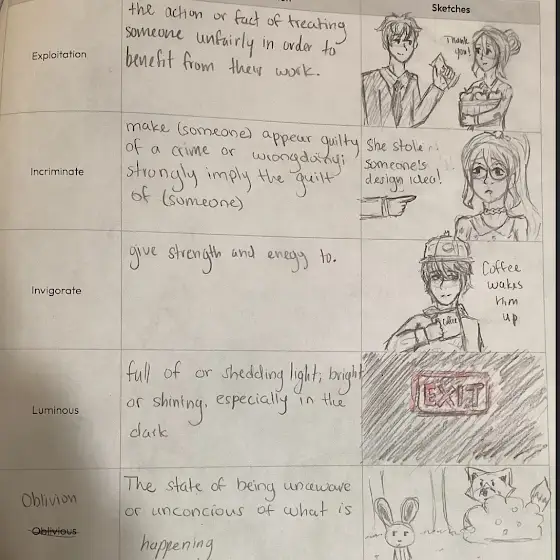 Sketches
Exploitation
the action or fact of treating
someone unfairly in order to
benefit from their work.
Thank
you!
Incriminate
make (someone) appear guilty
of a crime or wrongdoing;
strongly imply the guilt
of (someone)
She stole
someone's
design idea!
Invigorate
give strength and enegy to.
Coffee
wakes
him
up
Coffee
Luminous
full of or shedding light; bright
or shining, especially in the
dark
EXIT
Oblivion
Oblivious
The state of being unaware
or unconcious of what is
happening